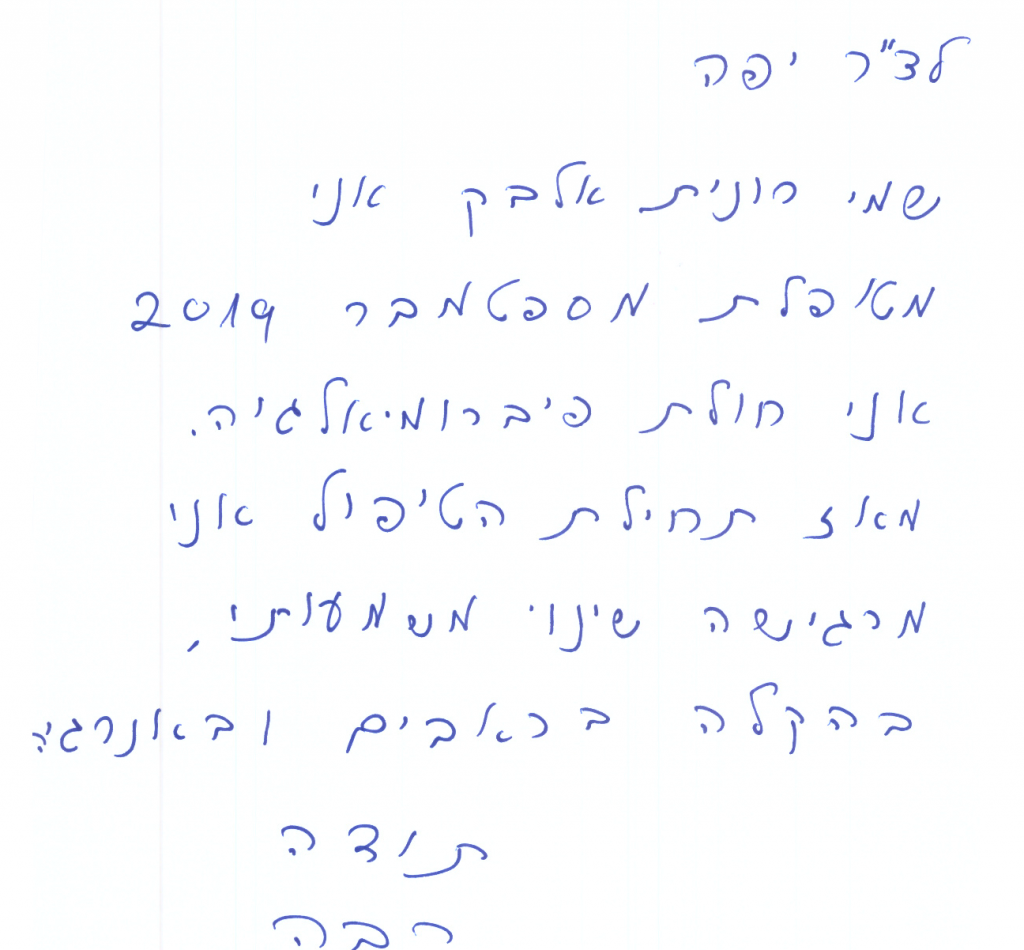 לד"ר יפה
שמי רונית אלבק אני
מטופלת מספטמבר 2019
אני חולת פיברומיאלגיה.
מאז תחילת הטיפול אני
מרגישה שינוי משמעותי,
בהקלה בכאבים ובאנרגיה
תודה
רבה